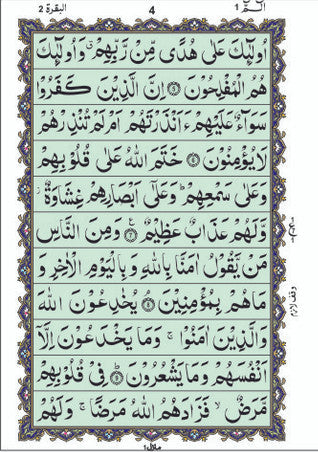 البقرة 2
4
الٓمّٓ 1
اُولٰٓئِكَ عَلٰى هُدًى مِّنْ رَّبِّهِمْ ۗ وَاُولٰٓئِكَ
هُمُ الْمُفْلِحُوْنَ ۝٥ اِنَّ الَّذِيْنَ كَفَرُوْا
سَوَآءٌ عَلَيْهِمْ ءَاَنْذَرْتَهُمْ اَمْ لَمْ تُنْذِرْهُمْ
لَا يُؤْمِنُوْنَ ۝٦ خَتَمَ اللّٰهُ عَلٰى قُلُوْبِهِمْ
وَعَلٰى سَمْعِهِمْ ؕ وَعَلٰٓى اَبْصَارِهِمْ غِشَاوَةٌ ؗ
وَّلَهُمْ عَذَابٌ عَظِيْمٌ ۝٧ وَمِنَ النَّاسِ
مَنْ يَّقُوْلُ اٰمَنَّا بِاللّٰهِ وَبِالْيَوْمِ الْاٰخِرِ وَ
مَاهُمْ بِمُؤْمِنِيْنَ ۝٨ يُخٰدِعُوْنَ اللّٰهَ
وَالَّذِيْنَ اٰمَنُوْا ۚ وَمَا يَخْدَعُوْنَ اِلَّآ
اَنْفُسَهُمْ وَمَا يَشْعُرُوْنَ ۝٩ فِيْ قُلُوْبِهِمْ
مَّرَضٌ ۙ فَزَادَهُمُ اللّٰهُ مَرَضًا ۚ وَلَهُمْ
وقف لازم
منزل ۱